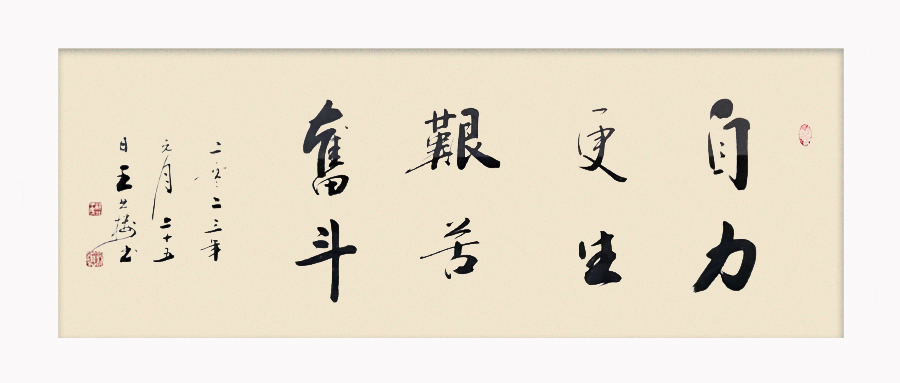 自力
更生
艱苦
奮斗
二零二三年
元月二十五
日王 書